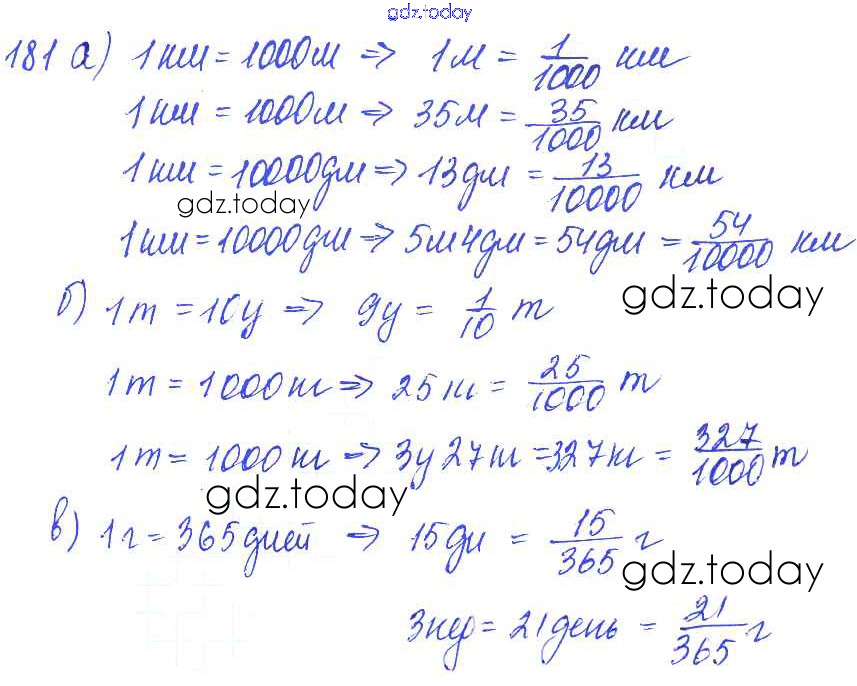 gdz.today
181 а) 1км = 1000м ⇒ 1м = 1/1000 км
1км = 1000м ⇒ 35м = 35/1000 км
1км = 10000дм ⇒ 13дм = 13/10000 км
gdz.today
1км = 10000дм ⇒ 5м4дм = 54дм = 54/10000 км
gdz.today
б) 1т = 10ц ⇒ 9ц = 1/10 т
1т = 1000кг ⇒ 25кг = 25/1000 т
1т = 1000кг ⇒ 3ц27кг = 327кг = 327/1000 т
gdz.today
в) 1г = 365дней ⇒ 15дн = 15/365 г
gdz.today
3нед = 21день = 21/365 г